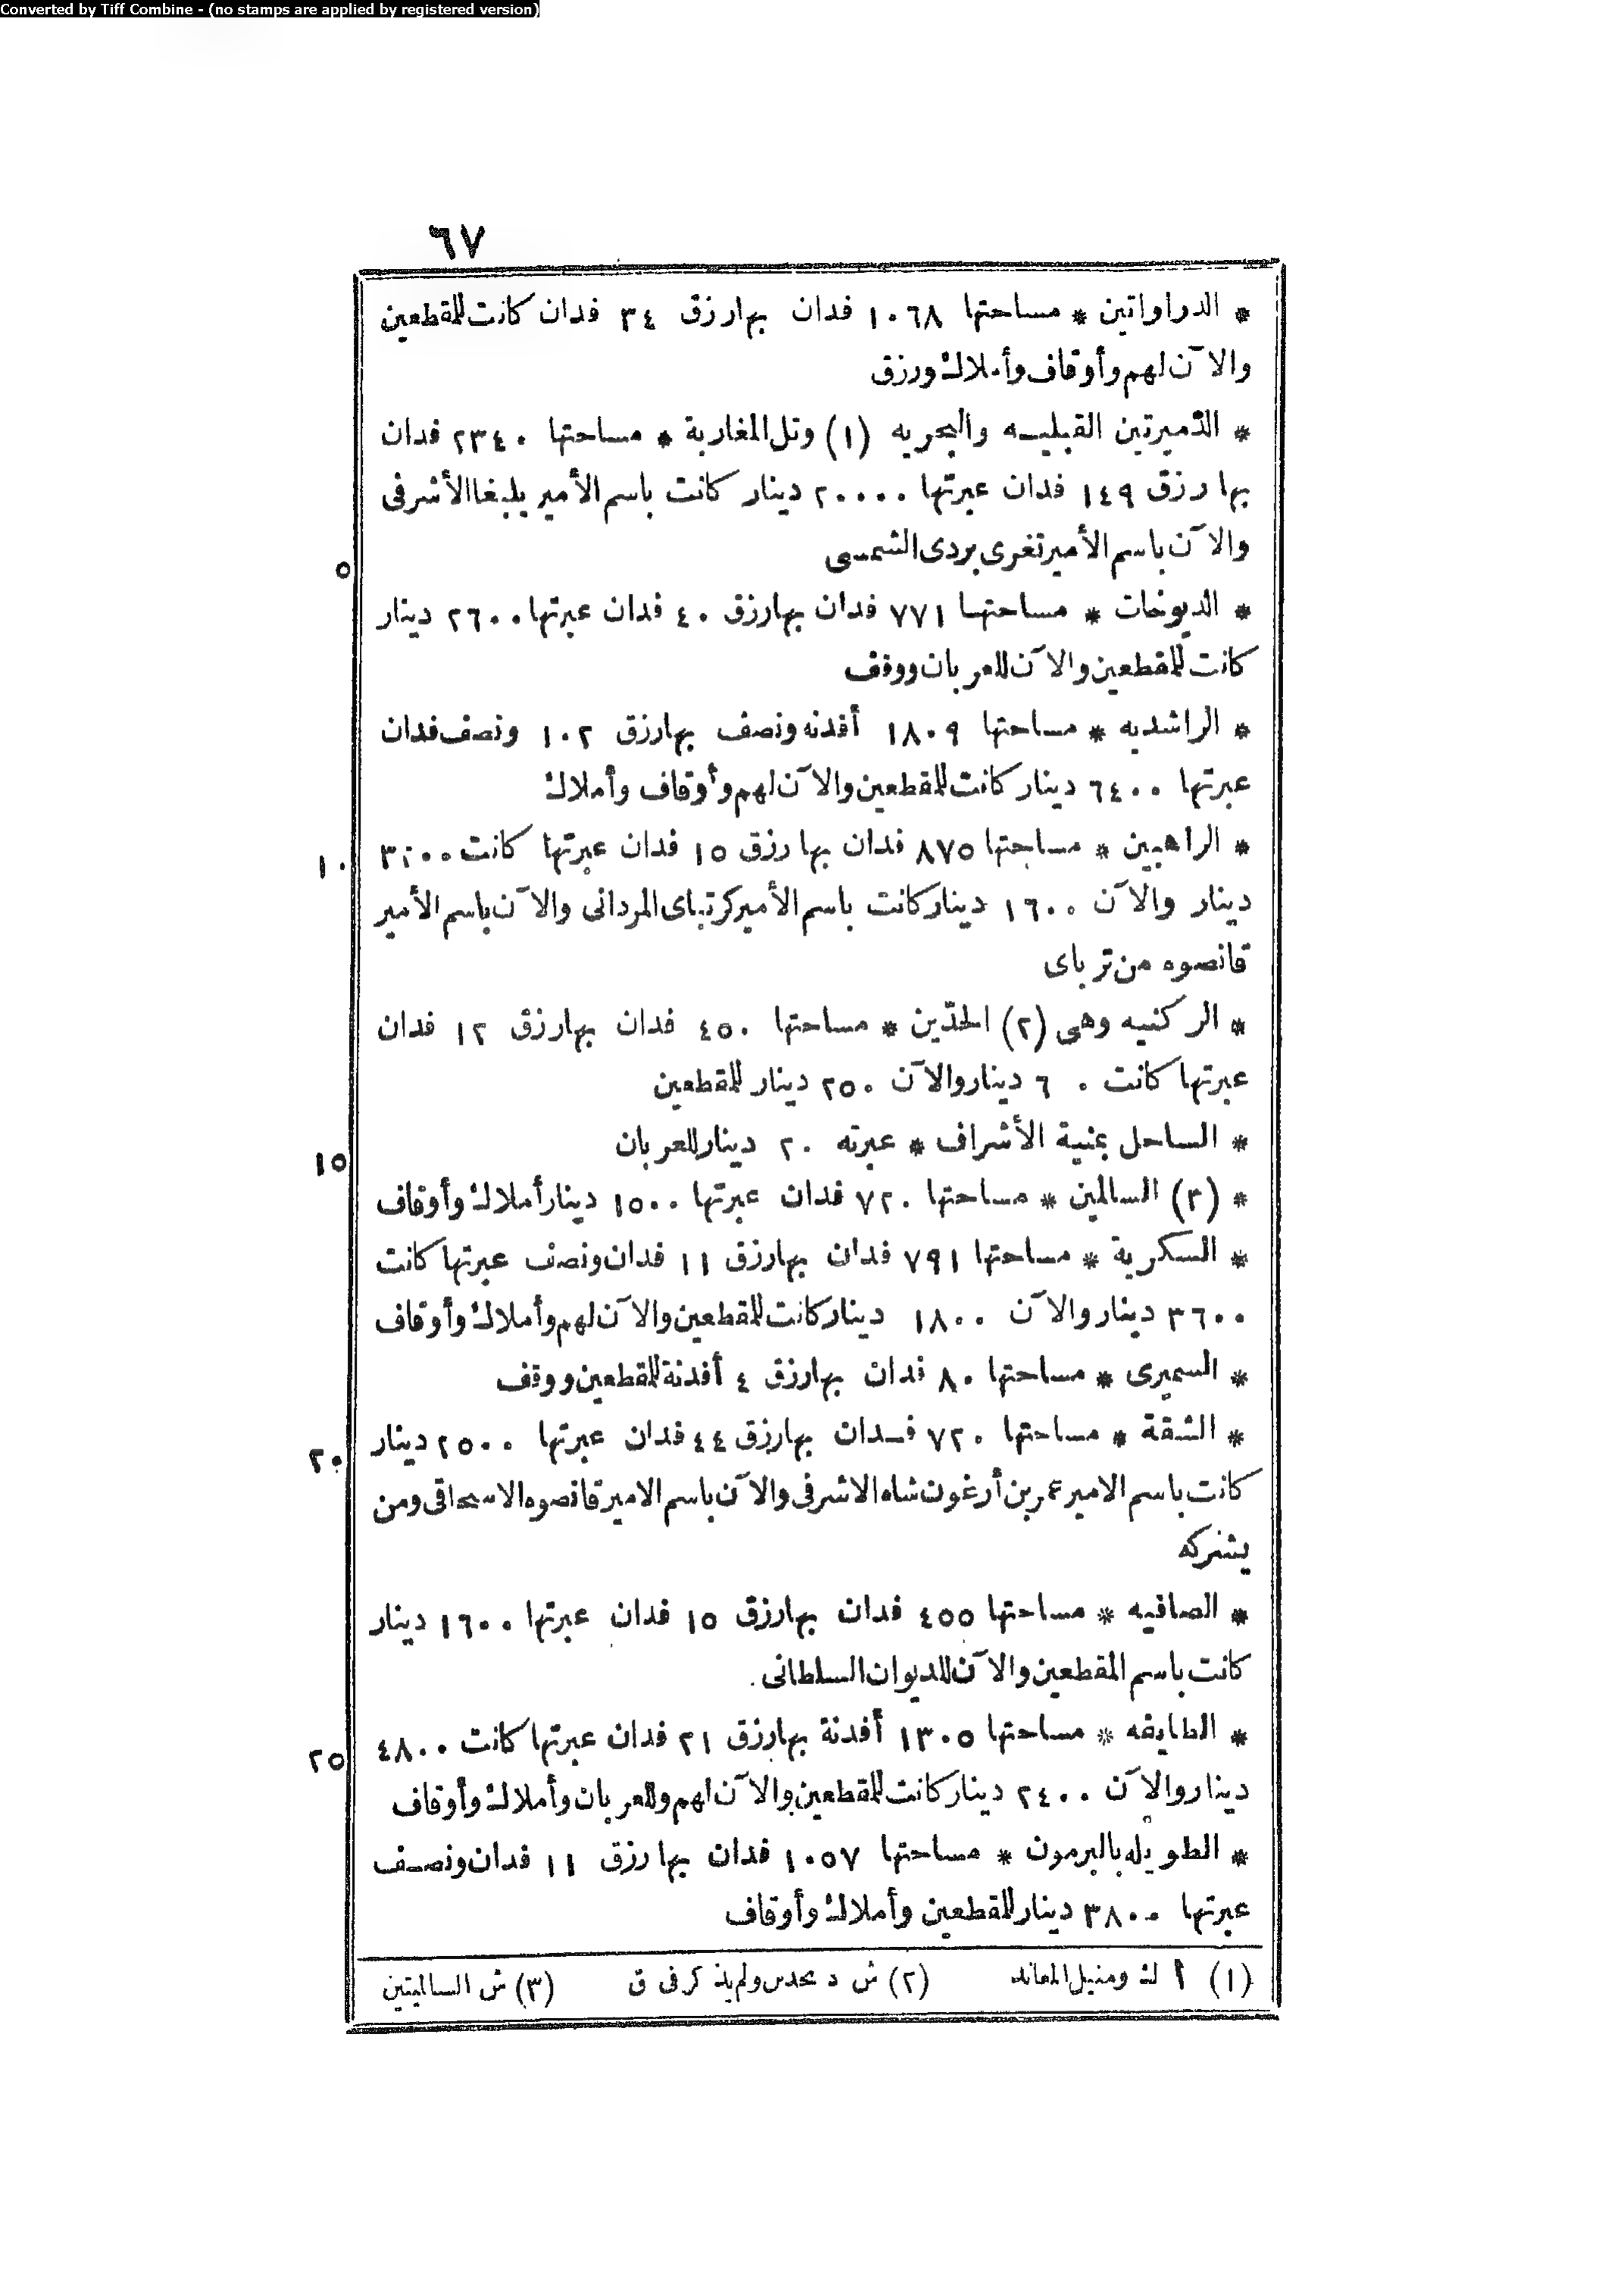 Converted by Tiff Combine - (no stamps are applied by registered version)
٦٧
* الدراواتين * مساحتها ١٠٦٨ فدان بها رزق ٣٤ فدان كانت للمقطعين
والآن لهم وأوقاف وأملاك ورزق
* الدميرتين القبليه والبحريه (١) وتل المغاربة * مساحتها ٢٣٤٠ فدان
بها رزق ١٤٩ فدان عبرتها ٢٠٠٠٠ دينار كانت باسم الأمير يلبغا الأشرفى
والآن باسم الأمير تغرى بردى الشمسى
٥
* الديوخات * مساحتها ٧٧١ فدان بها رزق ٤٠ فدان عبرتها ٢٦٠٠ دينار
كانت للمقطعين والآن للعربان ووقف
* الراشديه * مساحتها ١٨٠٩ أفدنه ونصف بها رزق ١٠٢ ونصف فدان
عبرتها ٦٤٠٠ دينار كانت للمقطعين والآن لهم وأوقاف وأملاك
* الراهبين * مساحتها ٨٧٥ فدان بها رزق ١٥ فدان عبرتها كانت ٣٢٠٠
١٠
دينار والآن ١٦٠٠ دينار كانت باسم الأمير كرتباى المردانى والآن باسم الأمير
قانصوه من تر باى
* الركنيه وهى (٢) الحدّين * مساحتها ٤٥٠ فدان بها رزق ١٢ فدان
عبرتها كانت ٦٠ دينار والآن ٢٥٠ دينار للمقطعين
* الساحل بمنية الأشراف * عبرته ٢٠ دينار للعربان
١٥
* (٣) السالمين * مساحتها ٧٢٠ فدان عبرتها ١٥٠٠ دينار أملاك وأوقاف
* السكرية * مساحتها ٧٩١ فدان بها رزق ١١ فدان ونصف عبرتها كانت
٣٦٠٠ دينار والآن ١٨٠٠ دينار كانت للمقطعين والآن لهم وأملاك وأوقاف
* السميرى * مساحتها ٨٠ فدان بها رزق ٤ أفدنة للمقطعين ووقف
* الشقة * مساحتها ٧٢٠ فدان بها رزق ٤٤ فدان عبرتها ٢٥٠٠ دينار
٢٠
كانت باسم الامير عمر بن أرغون شاه الاشرفى والآن باسم الامير قانصوه الاسحاقى ومن
يشركه
* الصافيه * مساحتها ٤٥٥ فدان بها رزق ١٥ فدان عبرتها ١٦٠٠ دينار
كانت باسم المقطعين والآن للديوان السلطانى.
* الطايفه * مساحتها ١٣٠٥ أفدنة بها رزق ٢١ فدان عبرتها كانت ٤٨٠٠
٢٥
دينار والآن ٢٤٠٠ دينار كانت للمقطعين والآن لهم وللعربان وأملاك وأوقاف
* الطويله بالبرمون * مساحتها ١٠٥٧ فدان بها رزق ١١ فدان ونصف
عبرتها ٣٨٠٠ دينار للمقطعين وأملاك وأوقاف
(١) أ ك ومنيل المعانه (٢) ش د ولم يذكر فى ق (٣) ش السالميتين